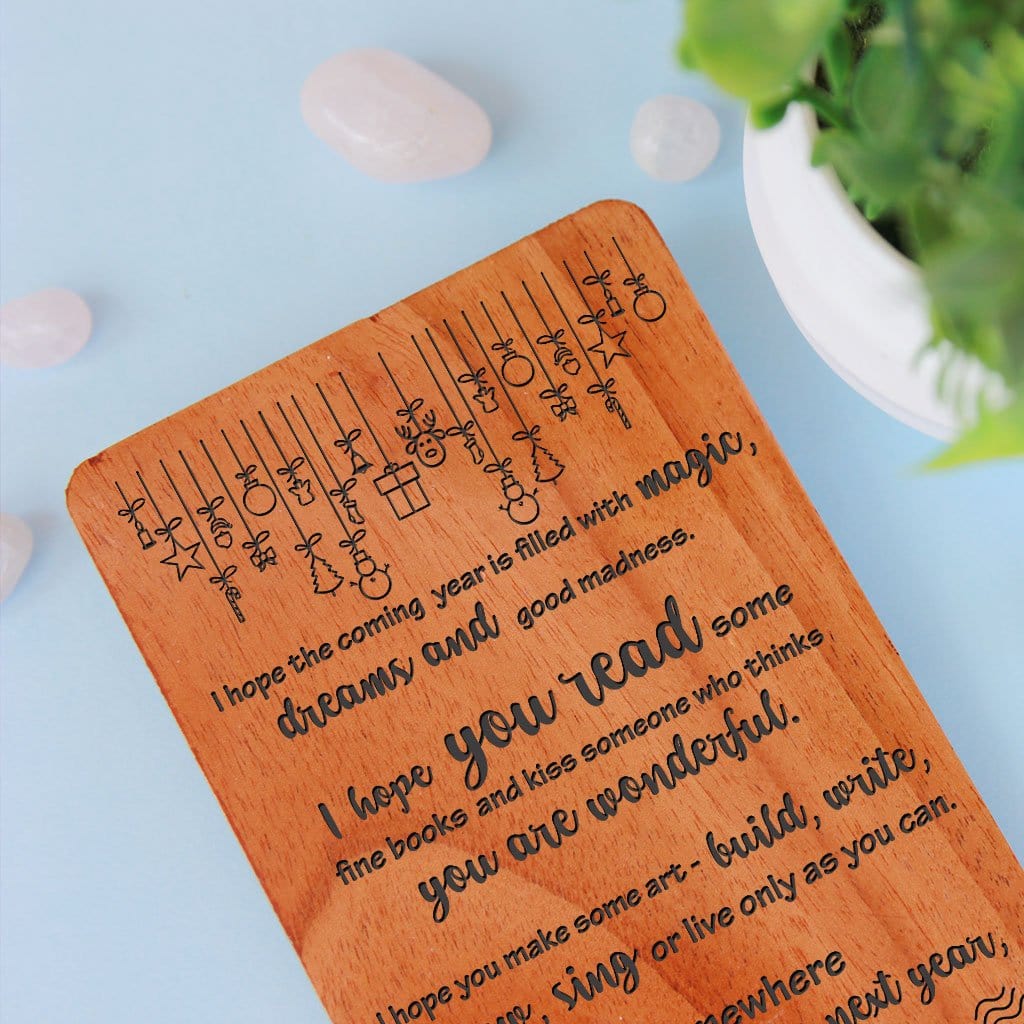 I hope the coming year is filled with magic,
dreams and good madness.
I hope you read some
fine books and kiss someone who thinks
you are wonderful.
I hope you make some art - build, write,
sing or live only as you can.
next year,